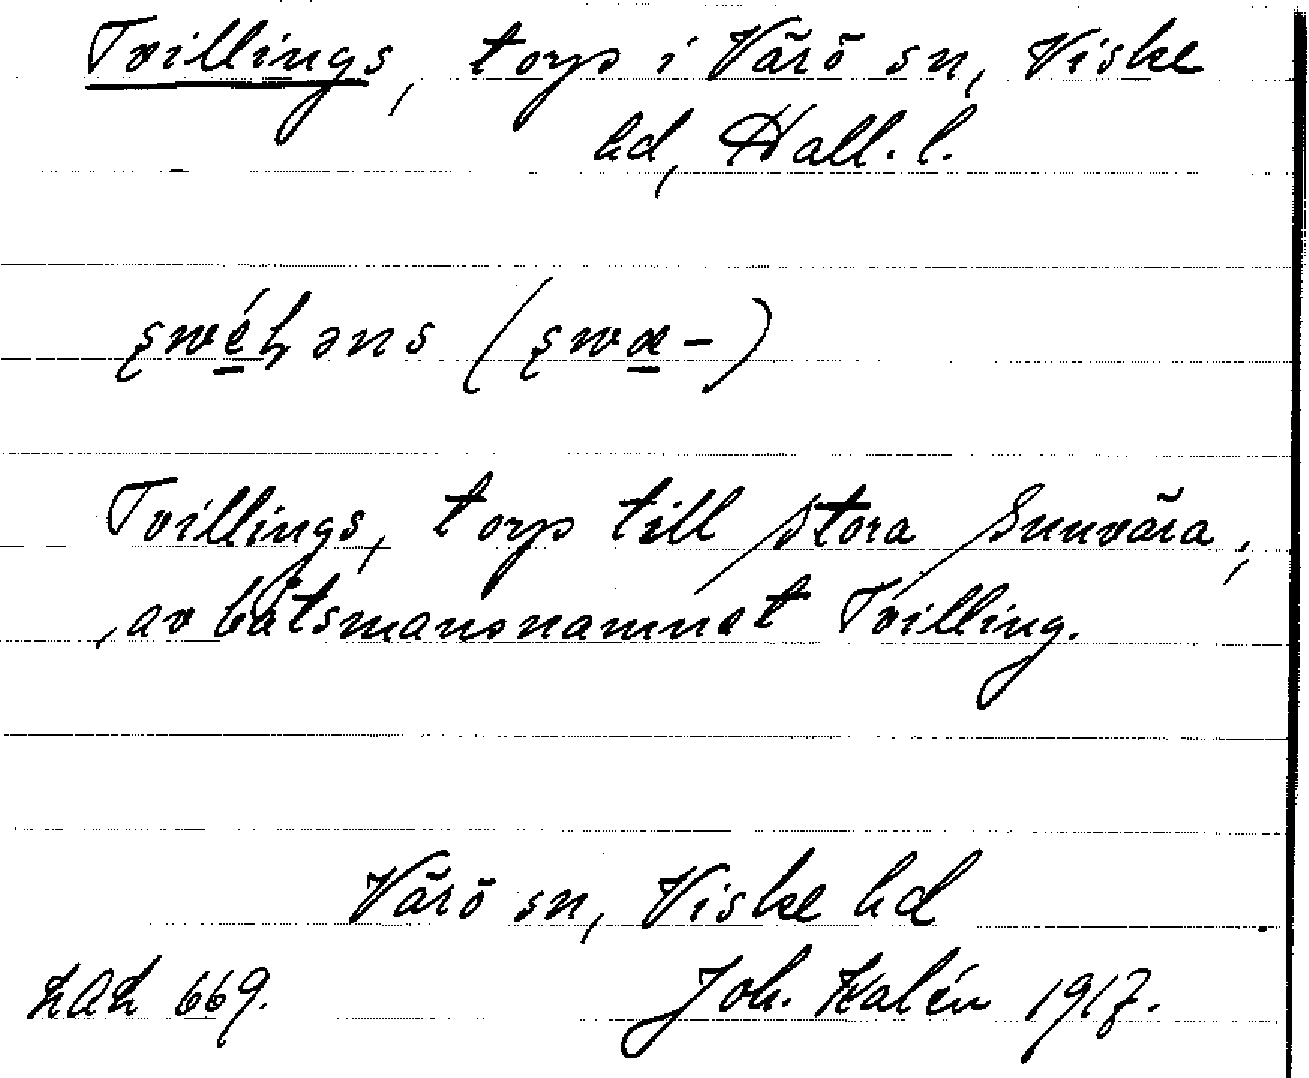 Tvillings, torp i Värö sn, Viske
hd, Hall. l.
Tvillings, torp till Stora Sunvära,
av båtsmansnamnet Tvilling.
Värö sn, Viske hd
LAL 669. Joh. Kalén 1917.